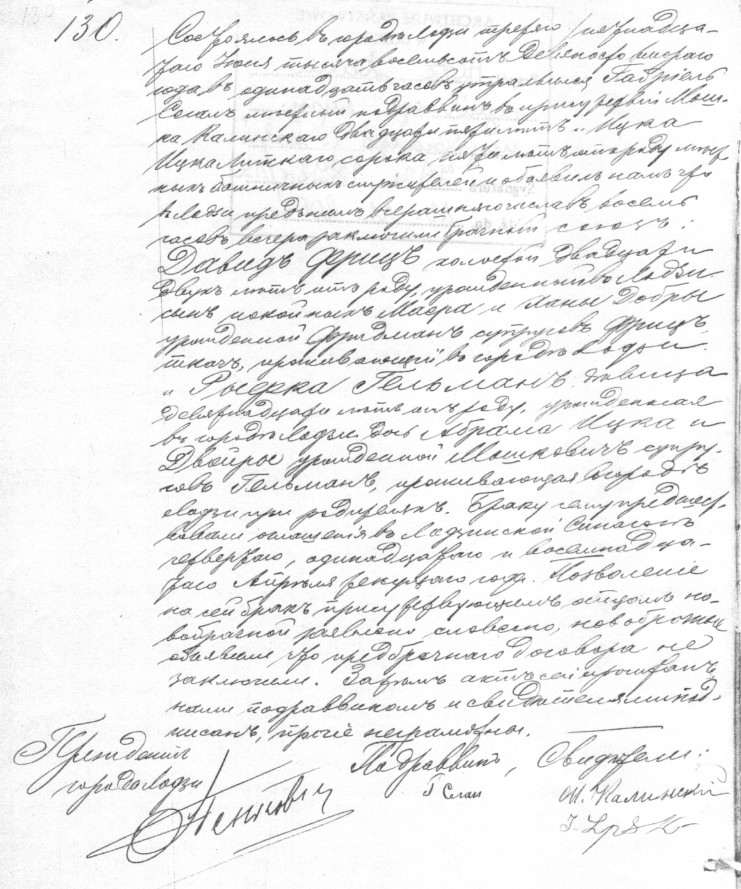 130.
Состоялось въ городѣ Лодзи третьяго /пятнадца-
таго Іюня тысяча восемьсотъ девяносто
года въ одинадцать часовъ утра явился Габріель
Сегалъ подраввинъ въ присутствіи Мош-
ка Калинскаго двадцати пяти лѣтъ и Ицка
сорока пяти лѣтъ отъ роду
служителей и объявилъ намъ что
въ Лодзи предъ нимъ въ восемь
часовъ вечера заключили брачный союзъ:
Давидъ Фрицъ холостой двадцати
двухъ лѣтъ отъ роду, урожденный въ Лодзи
сынъ покойныхъ Маера и Ханы Добры
урожденной супруговъ Фрицъ
ткачъ, проживающій въ городѣ Лодзи.
и Рыфка Гельманъ дѣвица
девятнадцати лѣтъ отъ роду, урожденная
въ городѣ Лодзи дочь Абрама Ицка и
Двойры урожденной Мошковичъ супру-
говъ Гельманъ, проживающая въ городѣ
Лодзи при родителяхъ. Браку сему предшест-
вовали оглашенія въ Лодзинской Синагогѣ
четвертаго, одинадцатаго и восемнадца-
таго Апрѣля текущаго года. Позволеніе
на сей бракъ присутствующимъ отцомъ но-
вобрачной заявлено словесно, новобрачные
объявили что предбрачнаго договора не
заключили. Затѣмъ актъ сей прочитанъ
нами подраввиномъ и свидѣтелями под-
писанъ, прочіе неграмотны.
Президентъ
города Лодзи
Подраввинъ, Свидѣтели:
Г Сегалъ
М. Калинскій